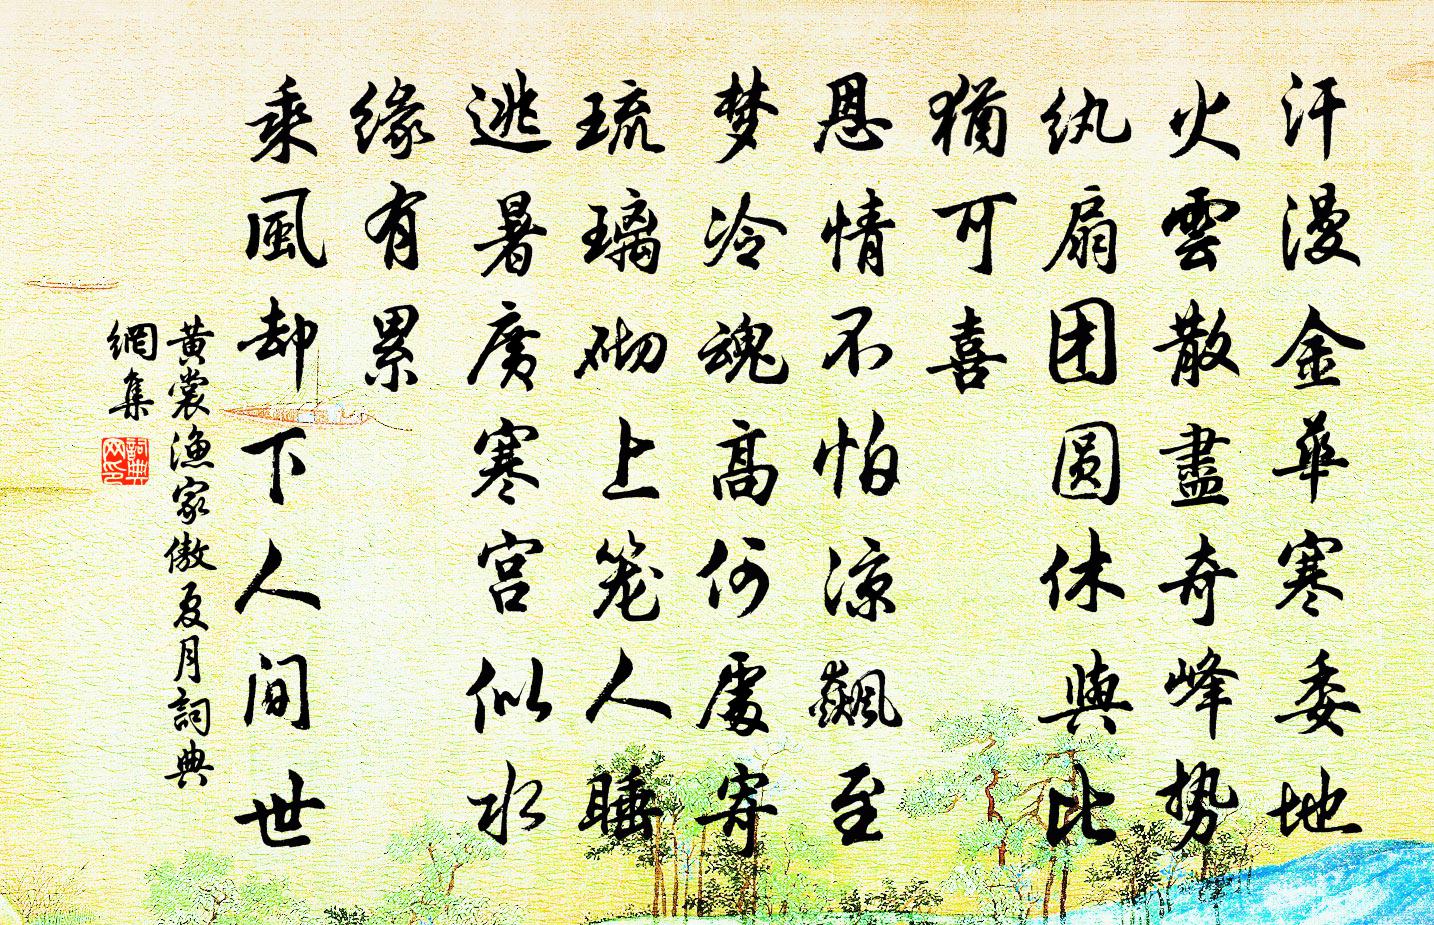 汗漫金華寒委地
火雲散盡奇峰势
纨扇团圆休與比
猶可喜
恩情不怕凉飆至
梦冷魂高何處寄
琉璃砌上笼人睡
逃暑廣寒宫似水
缘有累
乘風却下人间世
黄裳漁家傲夏月詞典
網集
詞典